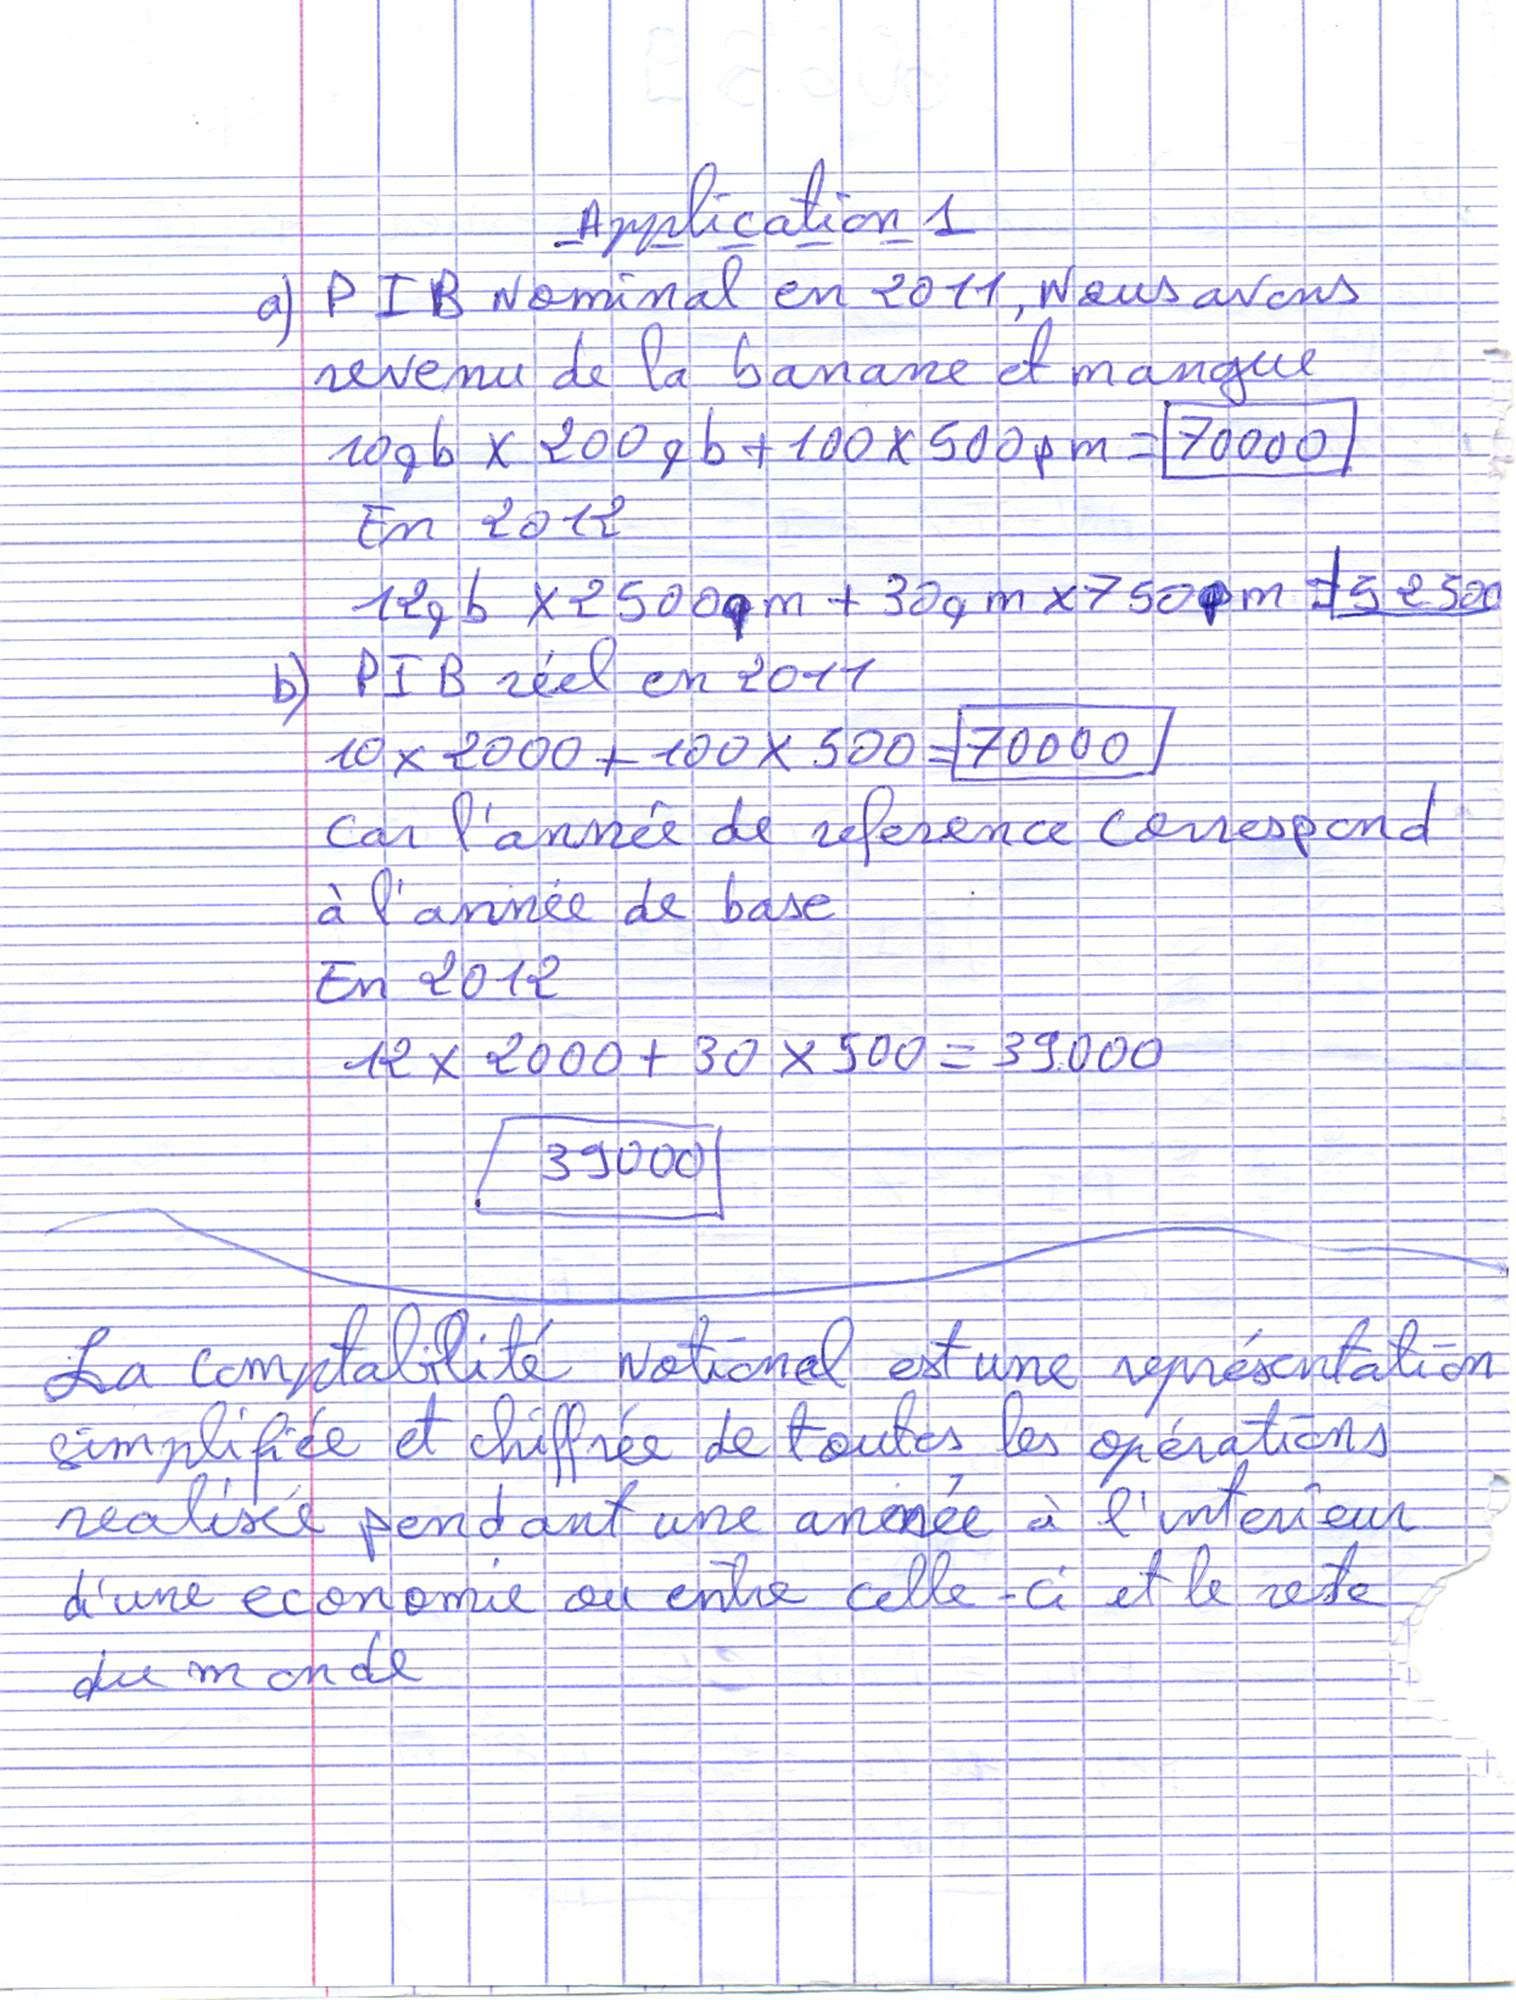 Application 1
a) PIB Nominal en 2011, Nous avons
revenu de la banane et mangue
10qb x 200qb + 100 x 500pm = 70000
En 2012
12qb x 2500qm + 30qm x 750pm = 52500
b) PIB réel en 2011
10 x 2000 + 100 x 500 = 70000
car l'année de reference correspond
à l'année de base
En 2012
12 x 2000 + 30 x 500 = 39000
39000
La comptabilité National est une représentation
simplifiée et chiffrée de toutes les opérations
realisée pendant une année à l'interieur
d'une economie ou entre celle-ci et le reste
du monde